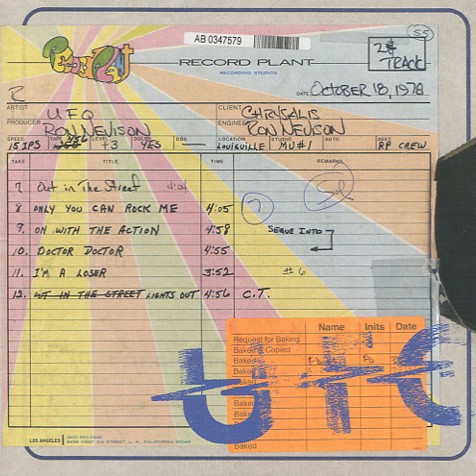 55
AB 0347579
Record Plant
RECORD PLANT
RECORDING STUDIOS
24 TRACK
DATE OCTOBER 18, 1978
ARTIST UFO
CLIENT CHRYSALIS
PRODUCER RON NEVISON
ENGINEER RON NEVISON
SPEED TAPE LEVEL DOLBY DBX LOCATION STUDIO AUTO ASST
15 IPS 456 +3 YES — LOUISVILLE MU#1 RP CREW
TAKE TITLE TIME REMARKS
7 Out in The Street 4:04
8 ONLY YOU CAN ROCK ME 4:05 7
9. ON WITH THE ACTION 4:58 SEGUE INTO
10. DOCTOR DOCTOR 4:55
11. I'M A LOSER 3:52 #6
12. OUT IN THE STREET LIGHTS OUT 4:56 C.T.
Name Inits Date
Request for Baking
Baked & Copied
Baked
Baked
Baked
Baked
Baked
Baked
Baked
UFO
LOS ANGELES